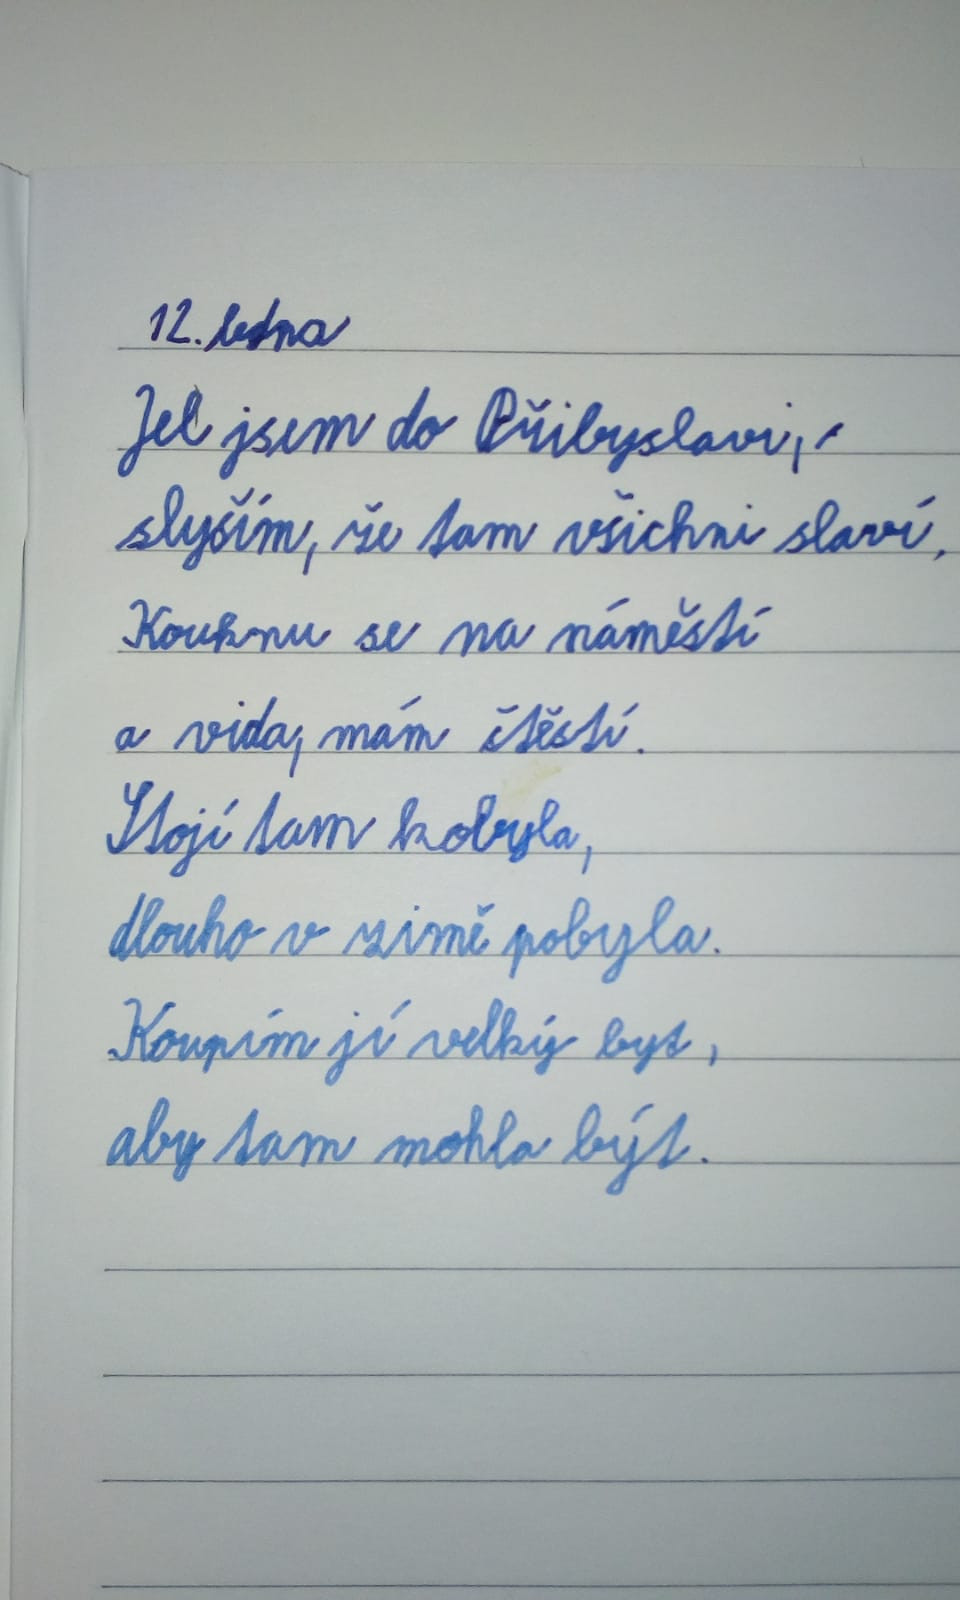 12. ledna
Jel jsem do Přibyslavi,
slyším, že tam všichni slaví.
Kouknu se na náměstí
a vida, mám štěstí.
Stojí tam kobyla,
dlouho v zimě pobyla.
Koupím jí velký byt,
aby tam mohla být.